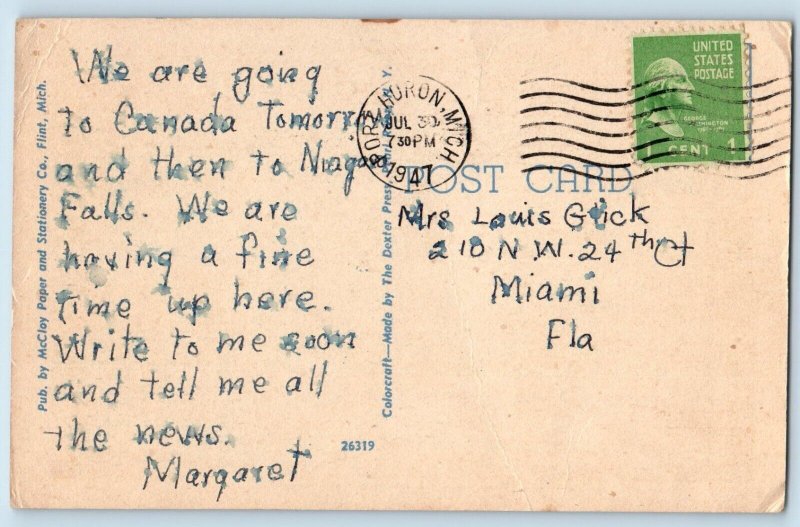 We are going
to Canada Tomorrow
and then to Niagara
Falls. We are
having a fine
time up here.
Write to me soon
and tell me all
the news.
Margaret
Pub. by McCloy Paper and Stationery Co., Flint, Mich.
Colorcraft—Made by The Dexter Press,
N. Y.
26319
PORT HURON, MICH
JUL 30
7 30 PM
1947
UNITED
STATES
POSTAGE
GEORGE
WASHINGTON
CENT 1
POST CARD
Mrs Louis Glick
210 N.W. 24th Ct
Miami
Fla